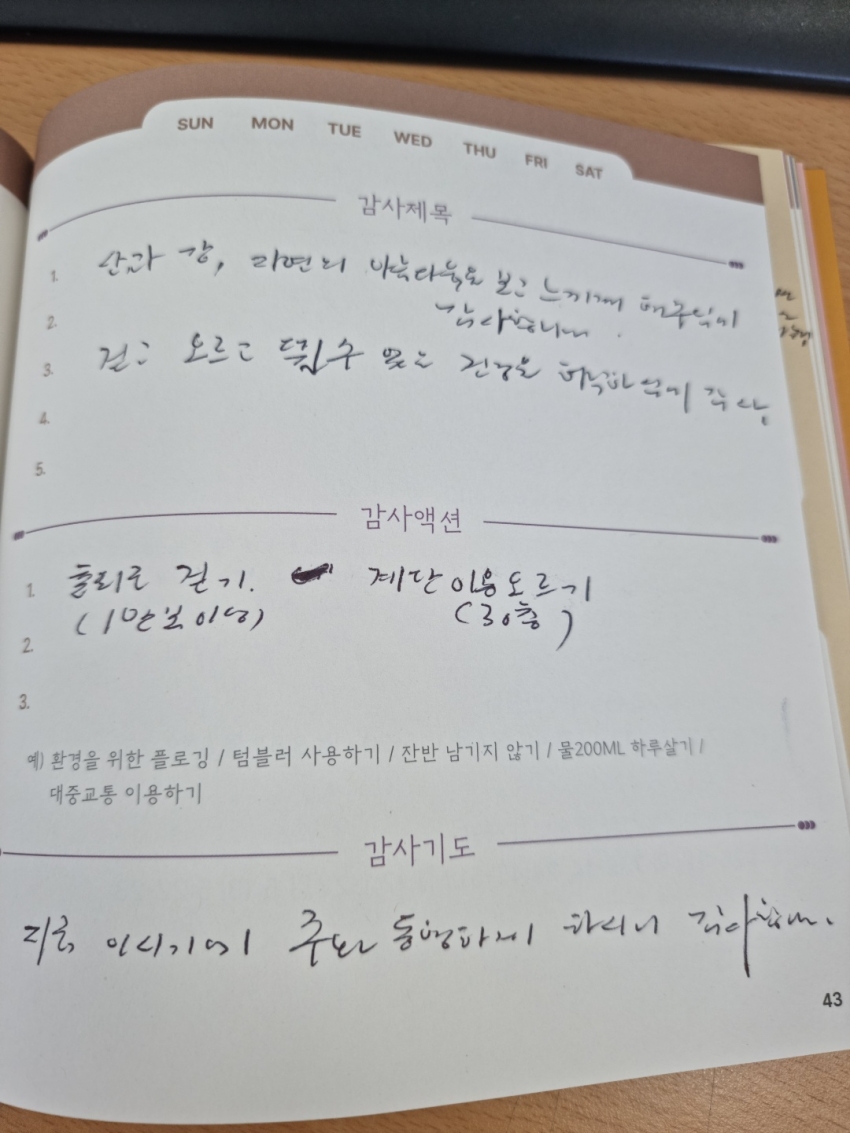 SUN MON TUE WED THU FRI SAT
감사제목
1. 산과 강, 자연의 아름다움을 보고 느끼게 해주심에
2. 감사합니다.
3. 걷고 오르고 뛸 수 있는 건강을 허락하심에 감사
4.
5.
감사액션
1. 둘레로 걷기. 계단이용오르기
(1만보이상) (30층)
2.
3.
예) 환경을 위한 플로깅 / 텀블러 사용하기 / 잔반 남기지 않기 / 물200ML 하루살기 /
대중교통 이용하기
감사기도
지금 이시기에 주와 동행하게 하시니 감사합니다.
43